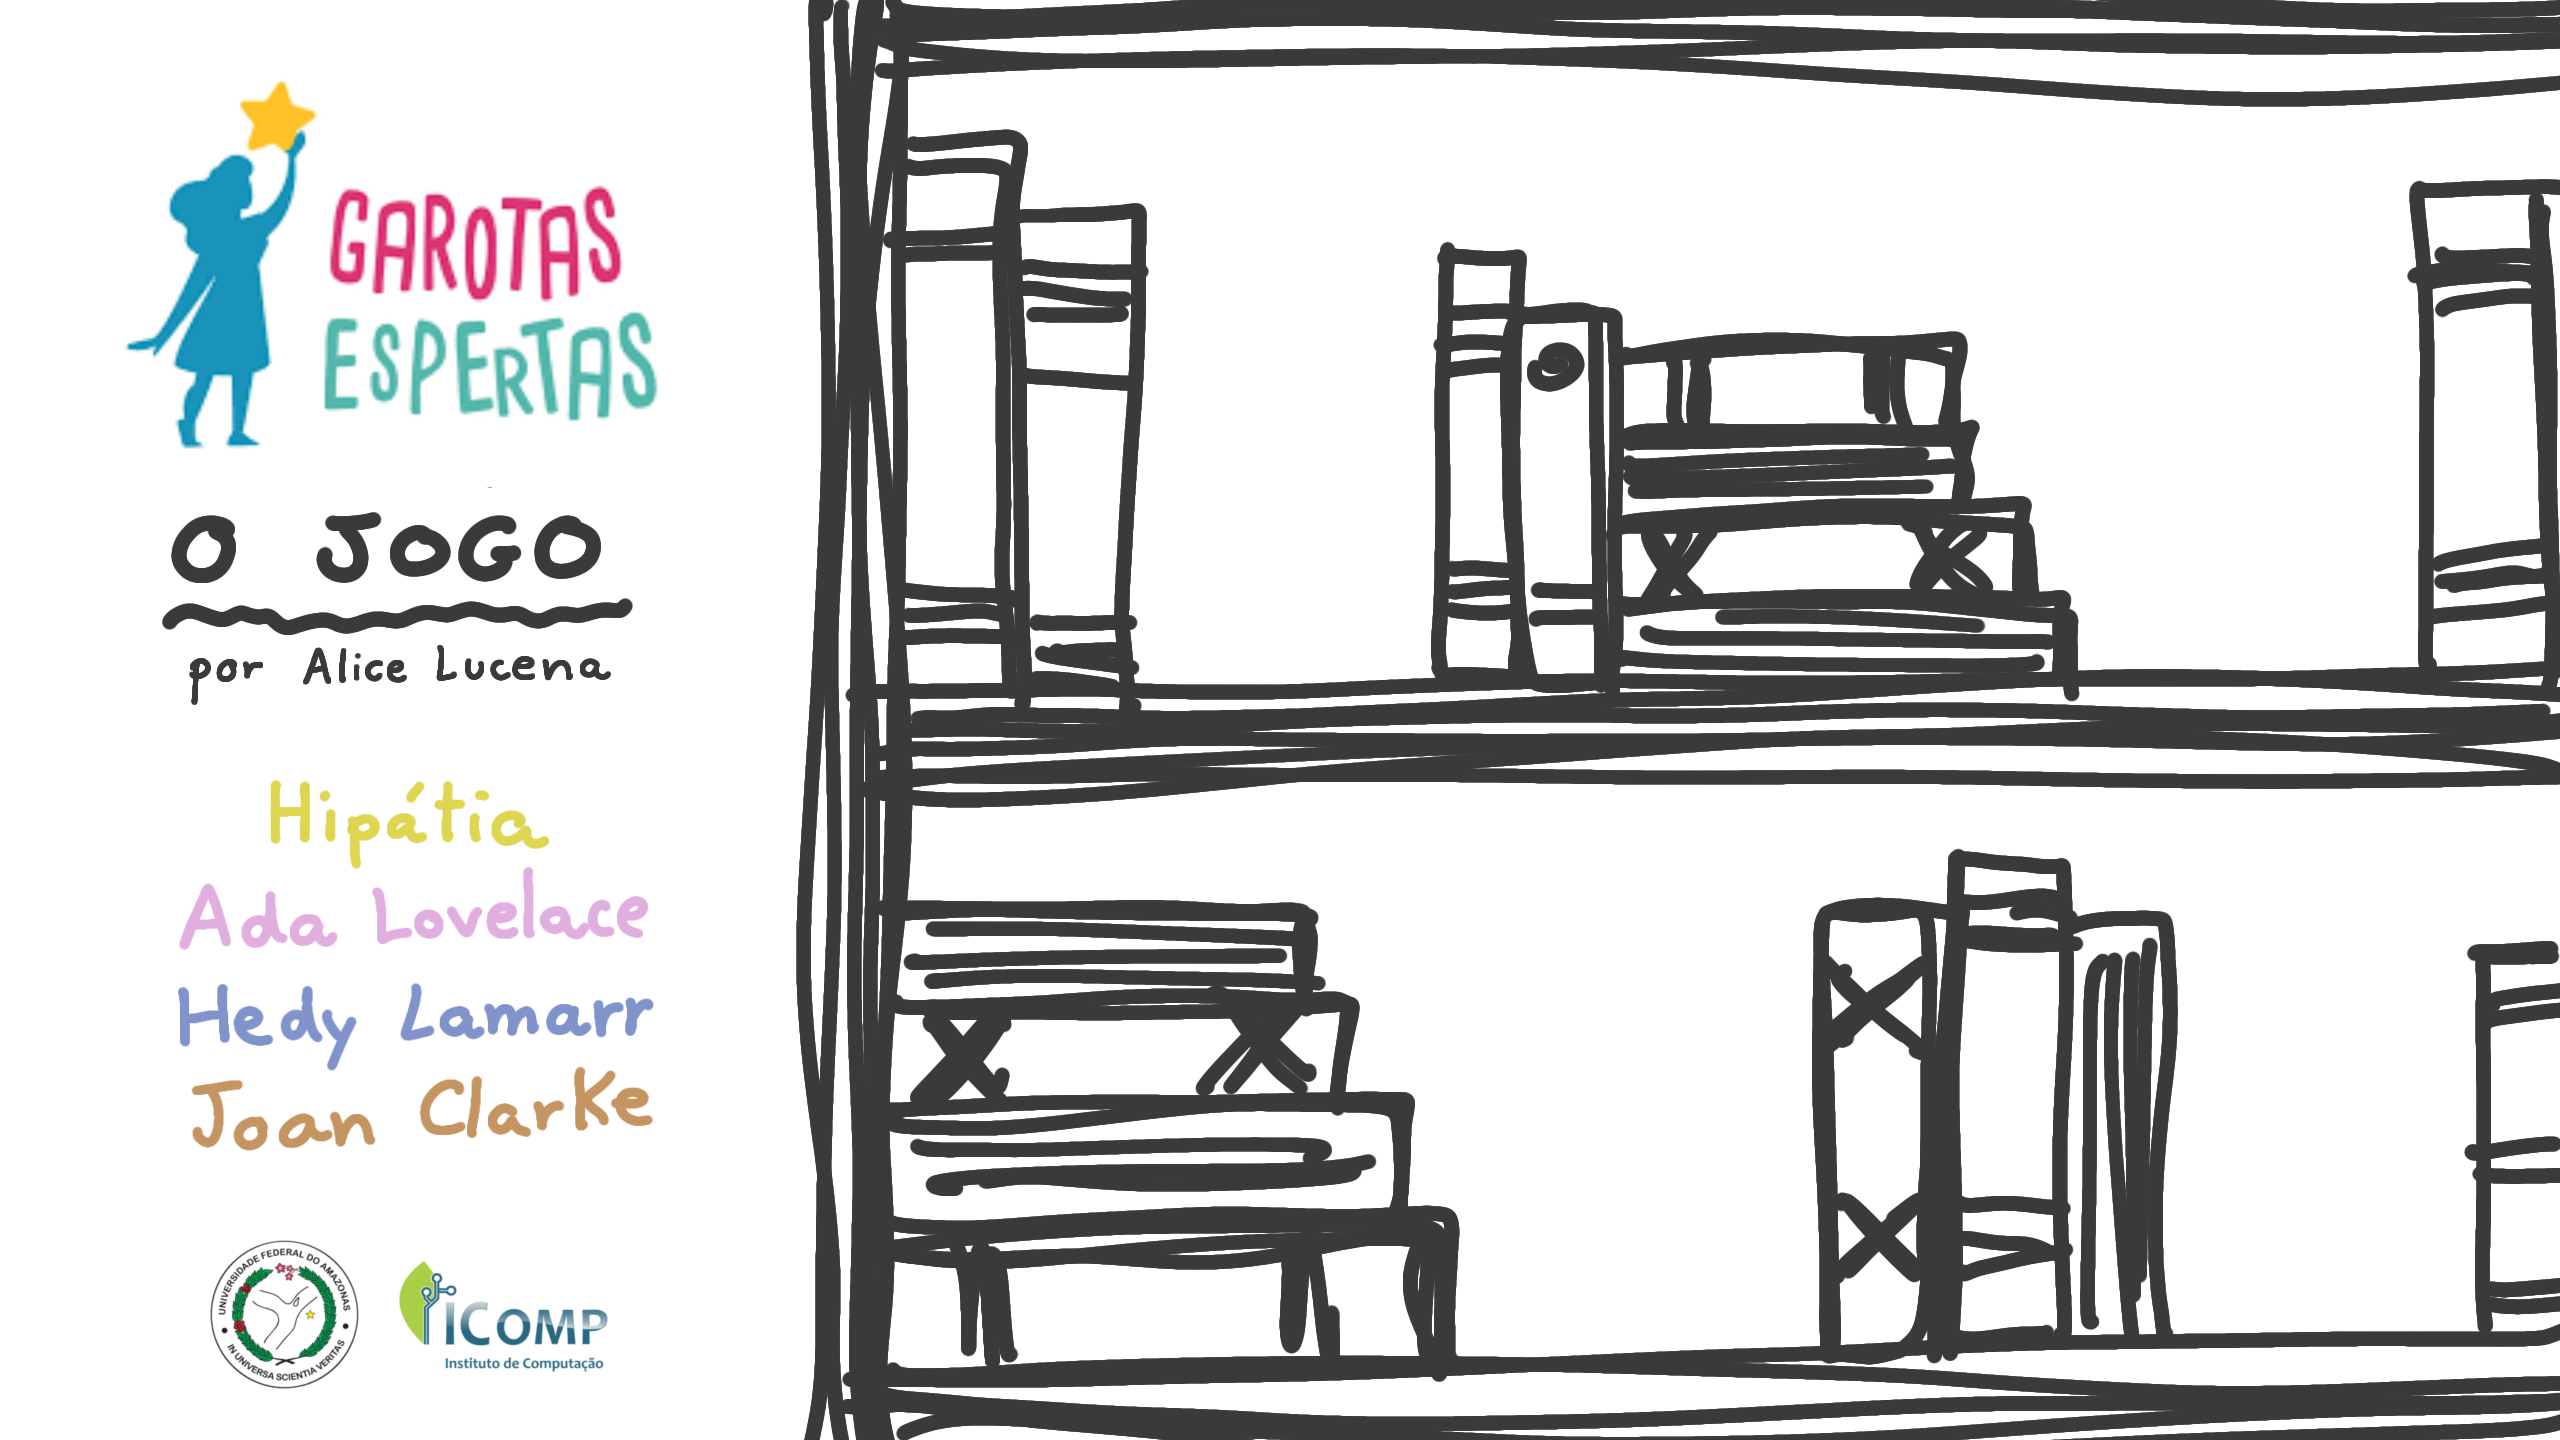 GAROTAS
ESPERTAS
O JOGO
por Alice Lucena
Hipátia
Ada Lovelace
Hedy Lamarr
Joan Clarke
UNIVERSIDADE FEDERAL DO AMAZONAS
IN UNIVERSA SCIENTIA VERITAS
ICOMP
Instituto de Computação